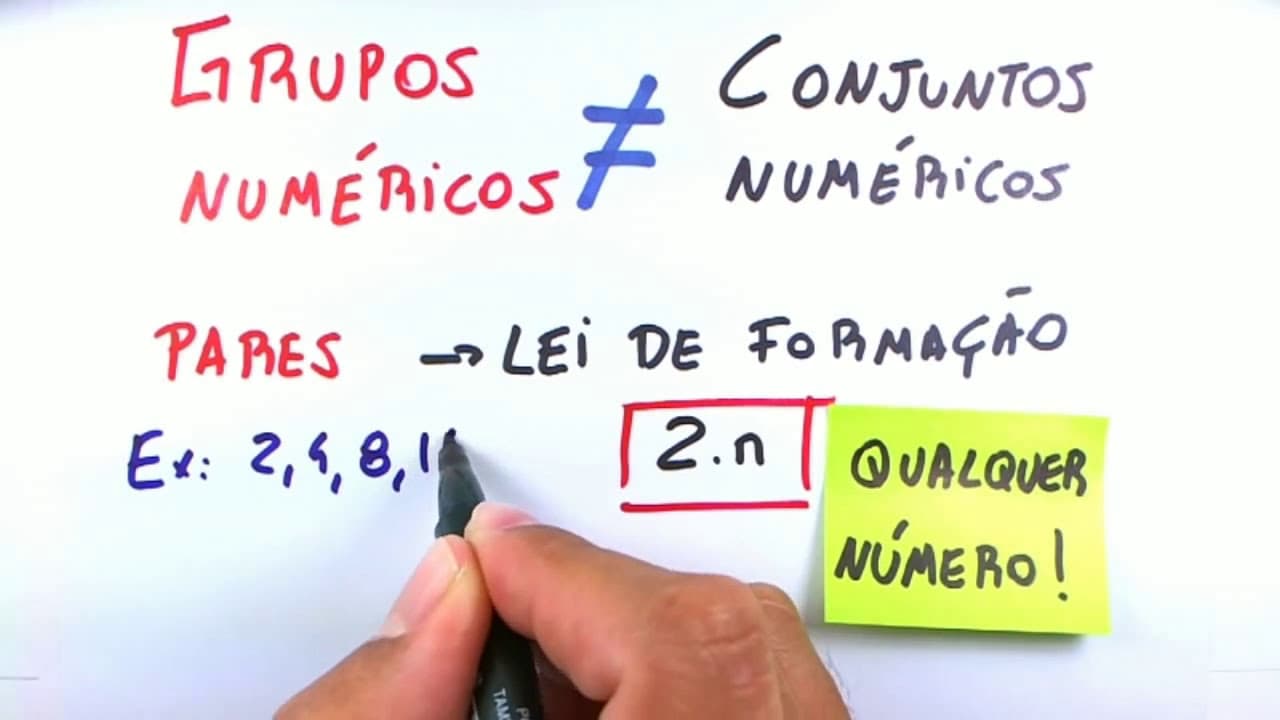 GRUPOS
NUMÉRICOS
≠
CONJUNTOS
NUMÉRICOS
PARES → LEI DE FORMAÇÃO
Ex: 2, 4, 8, 1
2.n
QUALQUER
NÚMERO!